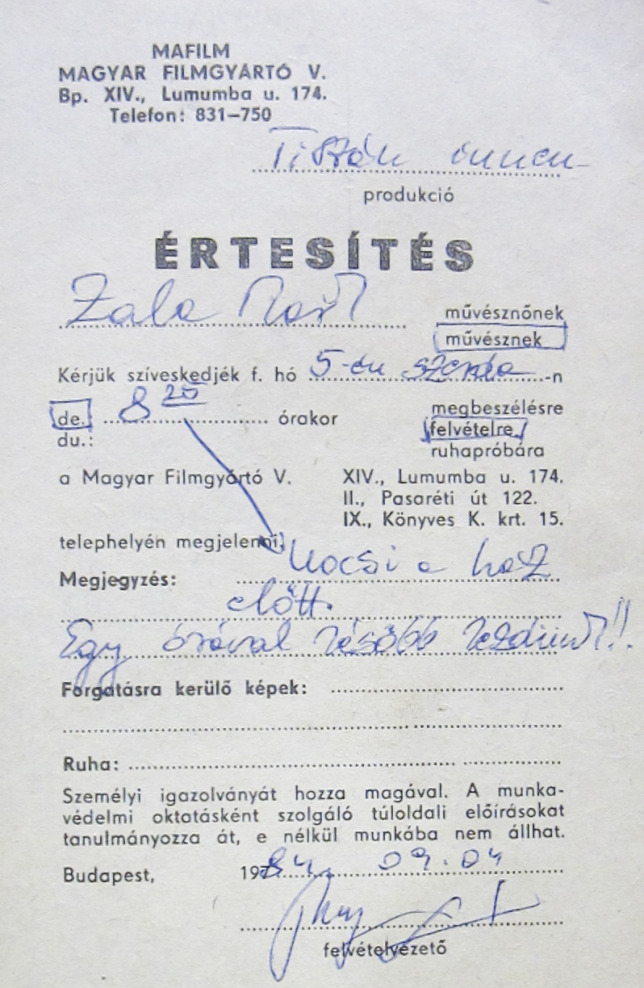 MAFILM
MAGYAR FILMGYÁRTÓ V.
Bp. XIV., Lumumba u. 174.
Telefon: 831–750
Tiszán innen
produkció
ÉRTESÍTÉS
Zala Márk
művésznőnek
művésznek
Kérjük szíveskedjék f. hó 5-én szerda -n
de. 8 20 órakor
du.:
megbeszélésre
felvételre
ruhapróbára
a Magyar Filmgyártó V.
XIV., Lumumba u. 174.
II., Pasaréti út 122.
IX., Könyves K. krt. 15.
telephelyén megjelenni.
Megjegyzés: kocsi a ház
előtt.
Egy órával később kezdünk!!
Forgatásra kerülő képek:
Ruha:
Személyi igazolványát hozza magával. A munka-
védelmi oktatásként szolgáló túloldali előírásokat
tanulmányozza át, e nélkül munkába nem állhat.
Budapest, 1984. 09.04
felvételvezető